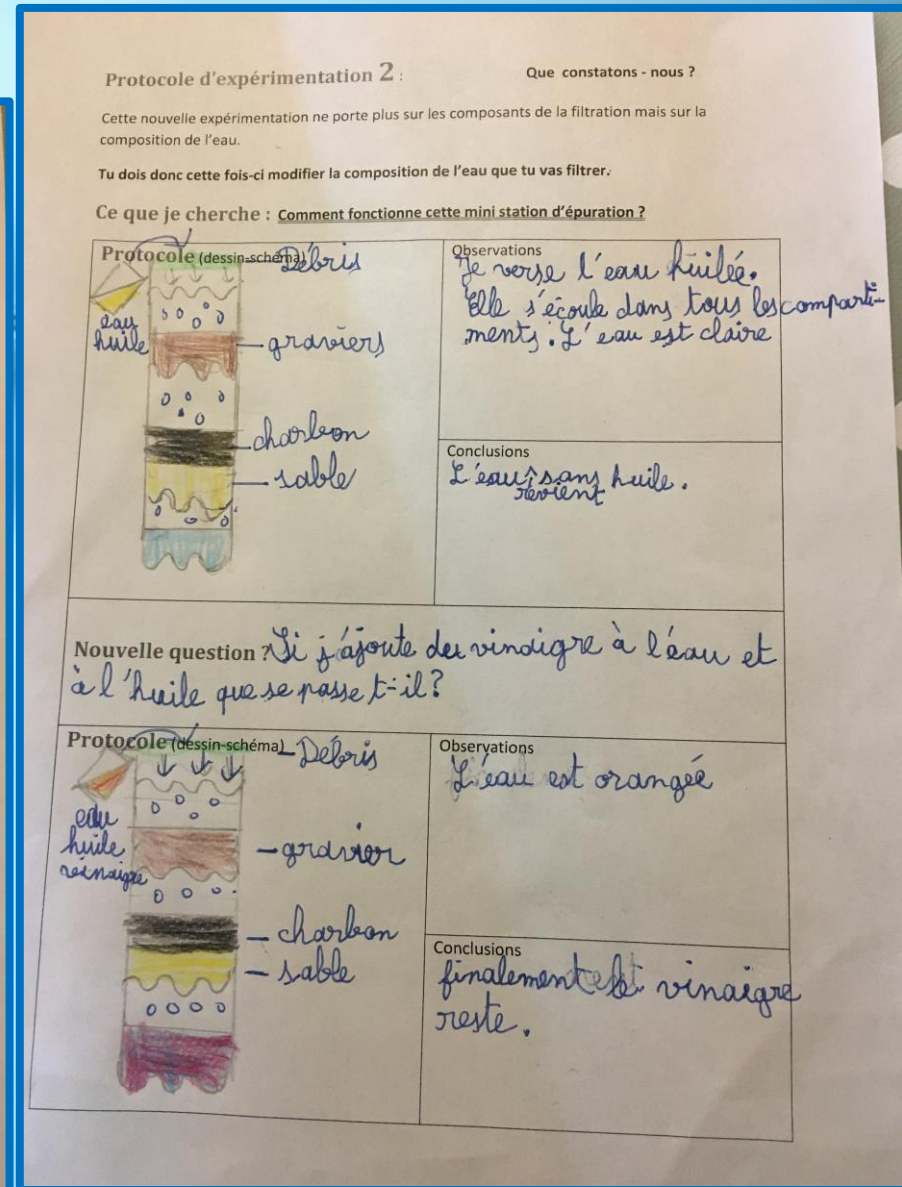 Protocole d'expérimentation 2 :
Que constatons - nous ?
Cette nouvelle expérimentation ne porte plus sur les composants de la filtration mais sur la
composition de l'eau.
Tu dois donc cette fois-ci modifier la composition de l'eau que tu vas filtrer.
Ce que je cherche : Comment fonctionne cette mini station d'épuration ?
Protocole (dessin-schéma)
Débris
eau
huile
graviers
charbon
sable
Observations
Je verse l'eau huilée.
Elle s'écoule dans tous les comparti-
ments. L'eau est claire
Conclusions
L'eau revient sans huile.
Nouvelle question ? Si j'ajoute du vinaigre à l'eau et
à l'huile que se passe t-il ?
Protocole (dessin-schéma)
Débris
eau
huile
vinaigre
gravier
charbon
sable
Observations
L'eau est orangée
Conclusions
finalement le vinaigre
reste.